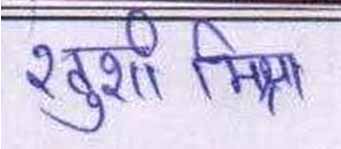 खुशी मिश्रा